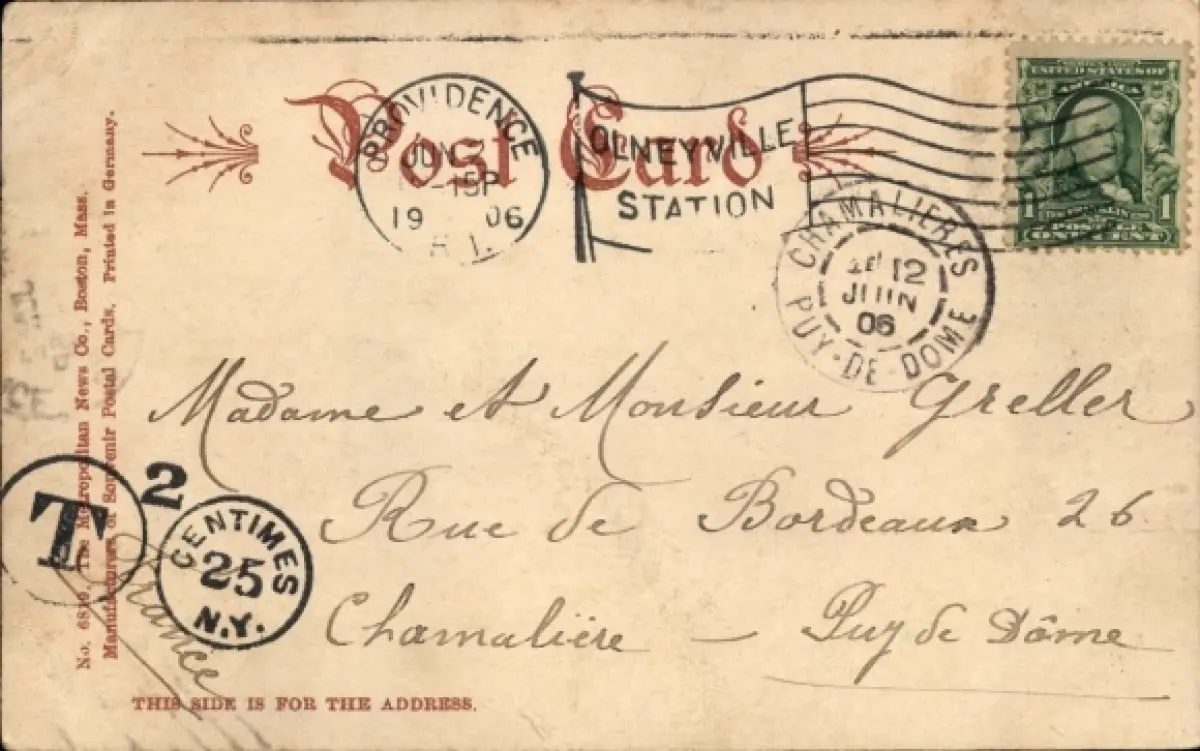 Post Card
PROVIDENCE
JUN
-15P
19 06
R.I.
OLNEYVILLE
STATION
UNITED STATES OF
AMERICA
1 1
POSTAGE
ONE CENT
CHAMALIERES
12
JUIN
06
PUY-DE-DOME
Madame et Monsieur Greller
Rue de Bordeaux 26
Chamalière – Puy de Dôme
France
T
2
CENTIMES
25
N.Y.
The Metropolitan News Co., Boston, Mass.
Manufacturers of Souvenir Postal Cards. Printed in Germany.
THIS SIDE IS FOR THE ADDRESS.